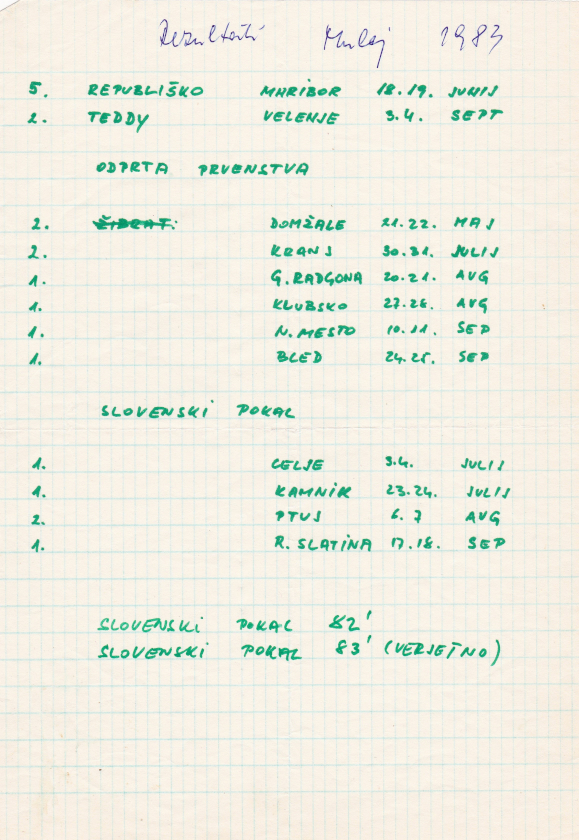 Rezultati Mulej 1983
5. REPUBLIŠKO MARIBOR 18.19. JUNIJ
2. TEDDY VELENJE 3.4. SEPT
ODPRTA PRVENSTVA
2. DOMŽALE 21.22. MAJ
2. KRANJ 30.31. JULIJ
1. G. RADGONA 20.21. AVG
1. KLUBSKO 27.28. AVG
1. N. MESTO 10.11. SEP
1. BLED 24.25. SEP
SLOVENSKI POKAL
1. CELJE 3.4. JULIJ
1. KAMNIK 23.24. JULIJ
2. PTUJ 6.7 AVG
1. R. SLATINA 17.18. SEP
SLOVENSKI POKAL 82'
SLOVENSKI POKAL 83' (VERJETNO)